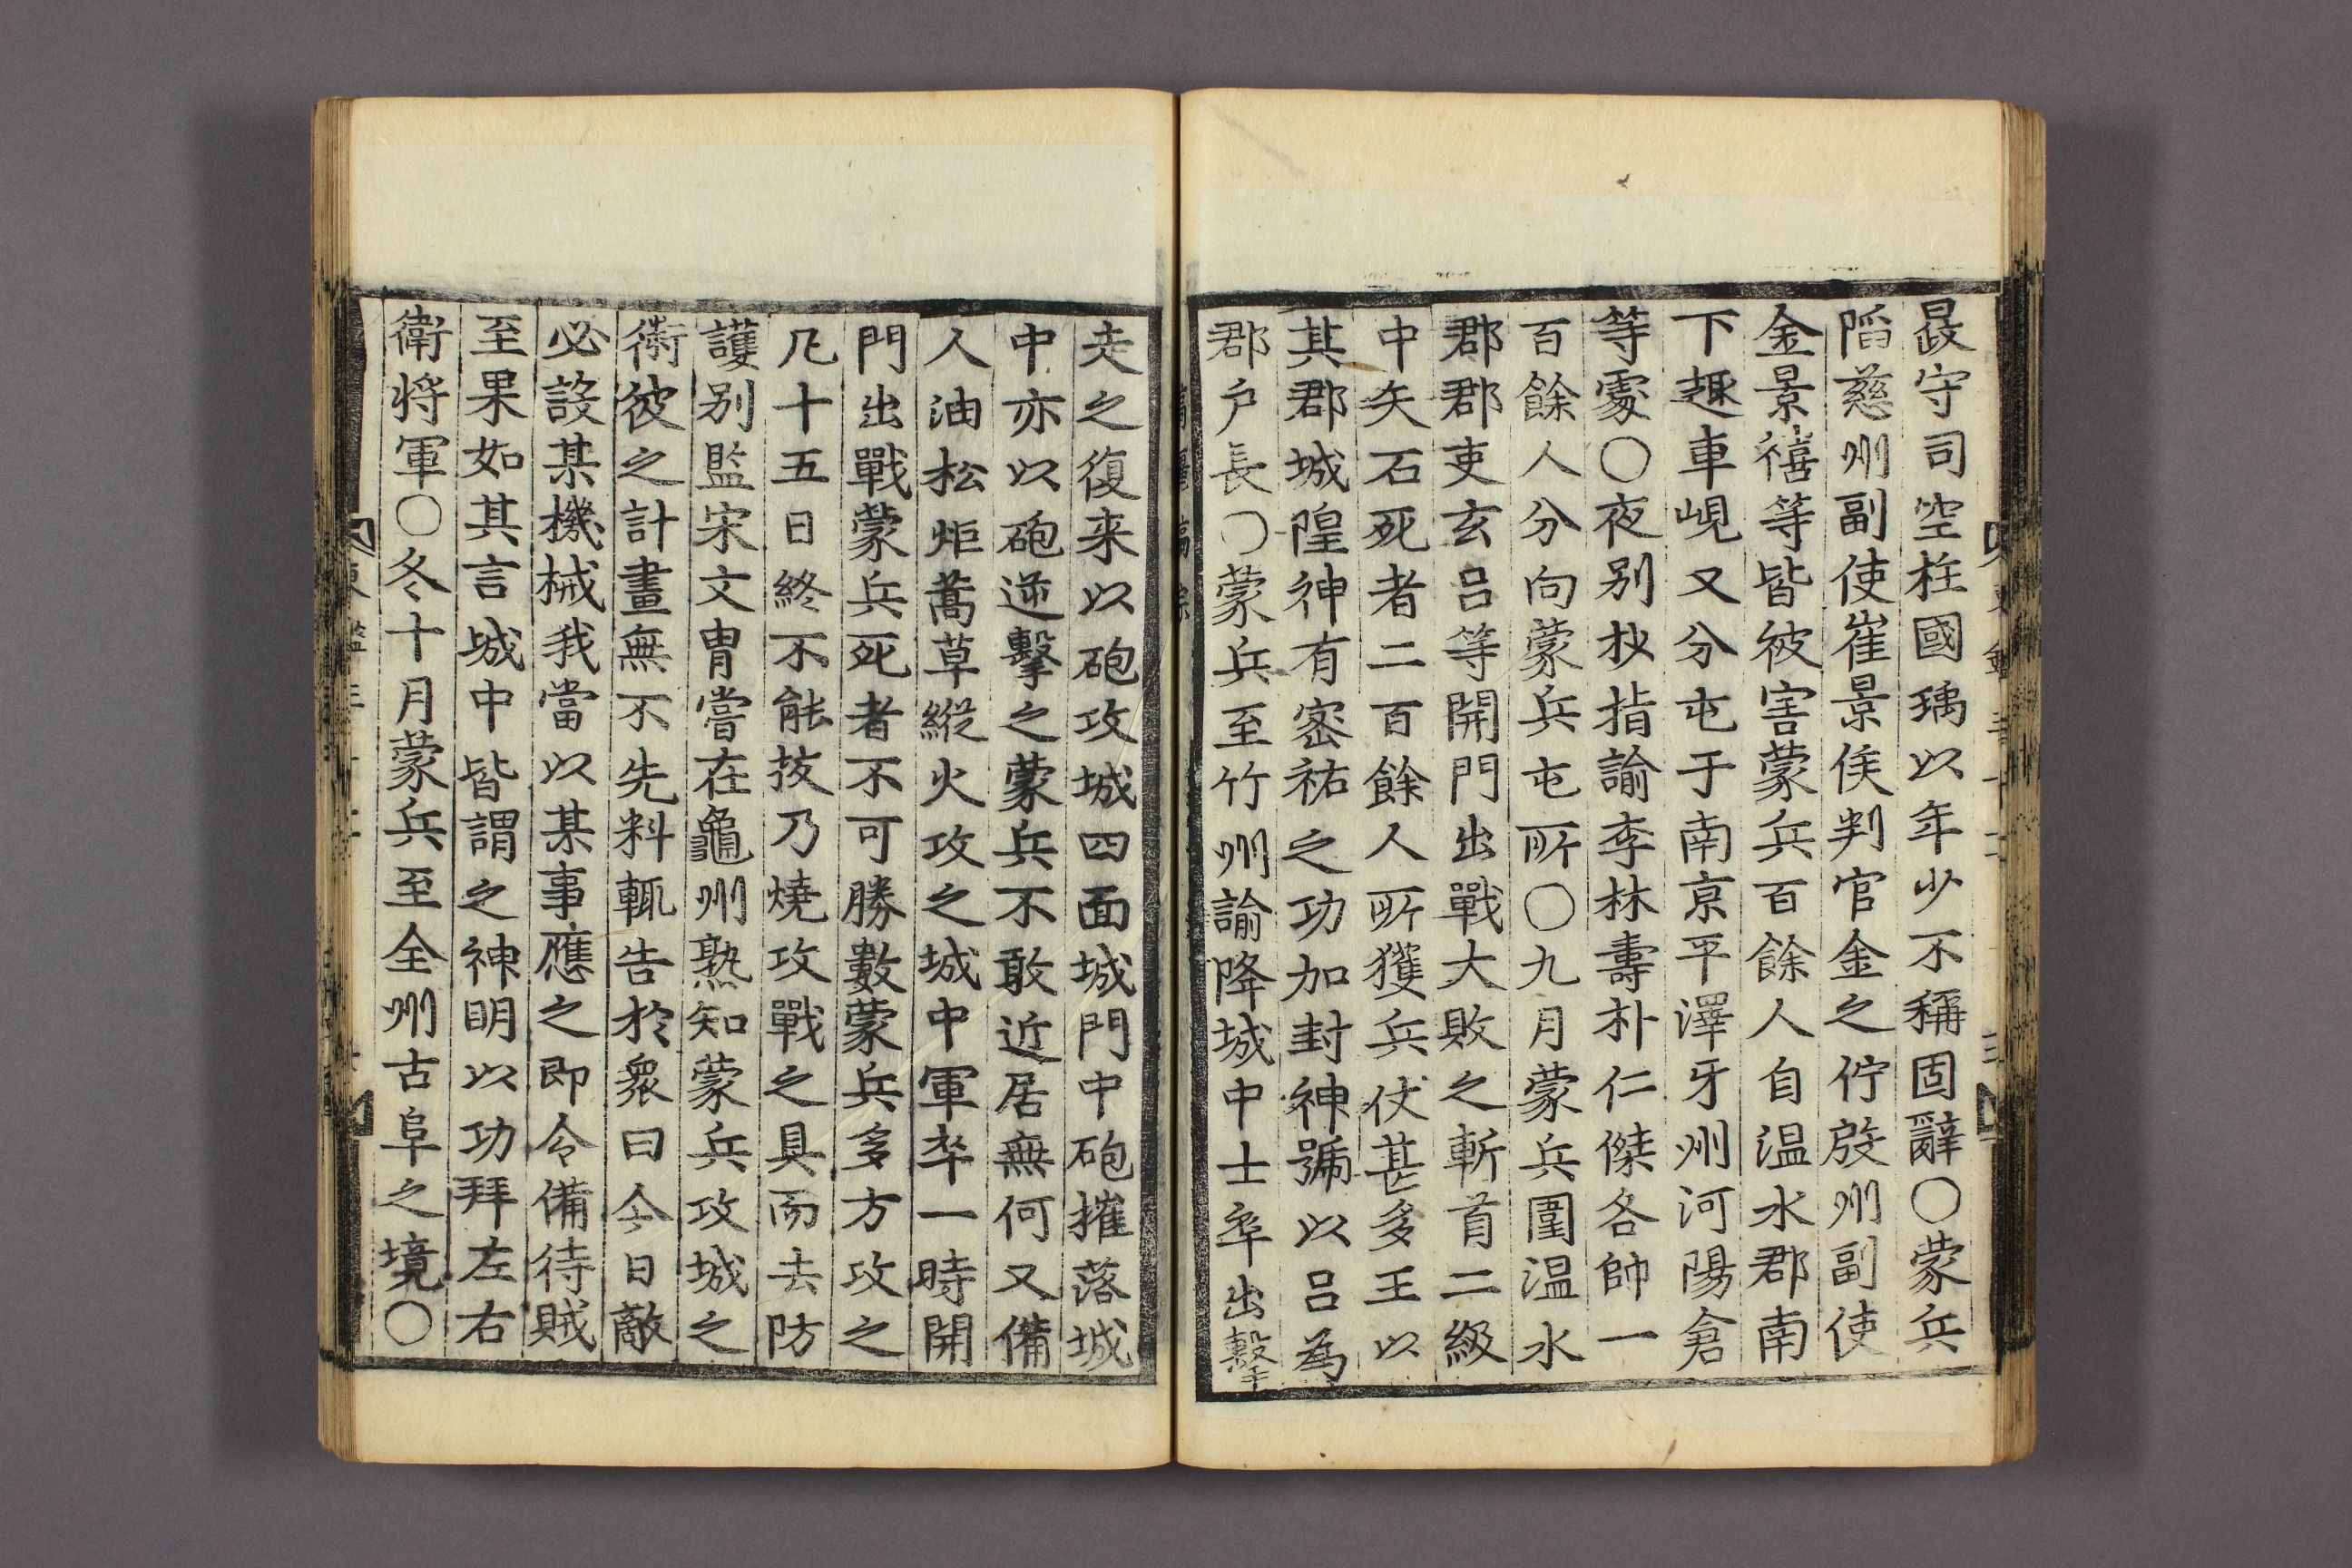 㝡守司空柱國瑀以年少不稱固辭○蒙兵
陷慈州副使崔景侯判官金之佇殷州副使
金景禧等皆被害蒙兵百餘人自温水郡南
下趣車峴又分屯于南京平澤牙州河陽倉
等處○夜别抄指諭李林壽朴仁傑各帥一
百餘人分向蒙兵屯所○九月蒙兵圍温水
郡郡吏玄呂等開門出戰大敗之斬首二級
中矢石死者二百餘人所獲兵仗甚多王以
其郡城隍神有密祐之功加封神號以呂為
郡户長○蒙兵至竹州諭降城中士卒出擊
走之復来以砲攻城四面城門中砲摧落城
中亦以砲逆擊之蒙兵不敢近居無何又備
人油松炬蒿草縱火攻之城中軍卒一時開
門出戰蒙兵死者不可勝數蒙兵多方攻之
凡十五日終不能拔乃燒攻戰之具而去防
護别監宋文冑嘗在龜州熟知蒙兵攻城之
術彼之計畫無不先料輒告於衆曰今日敵
必設某機械我當以某事應之即令備待賊
至果如其言城中皆謂之神明以功拜左右
衛将軍○冬十月蒙兵至全州古阜之境○